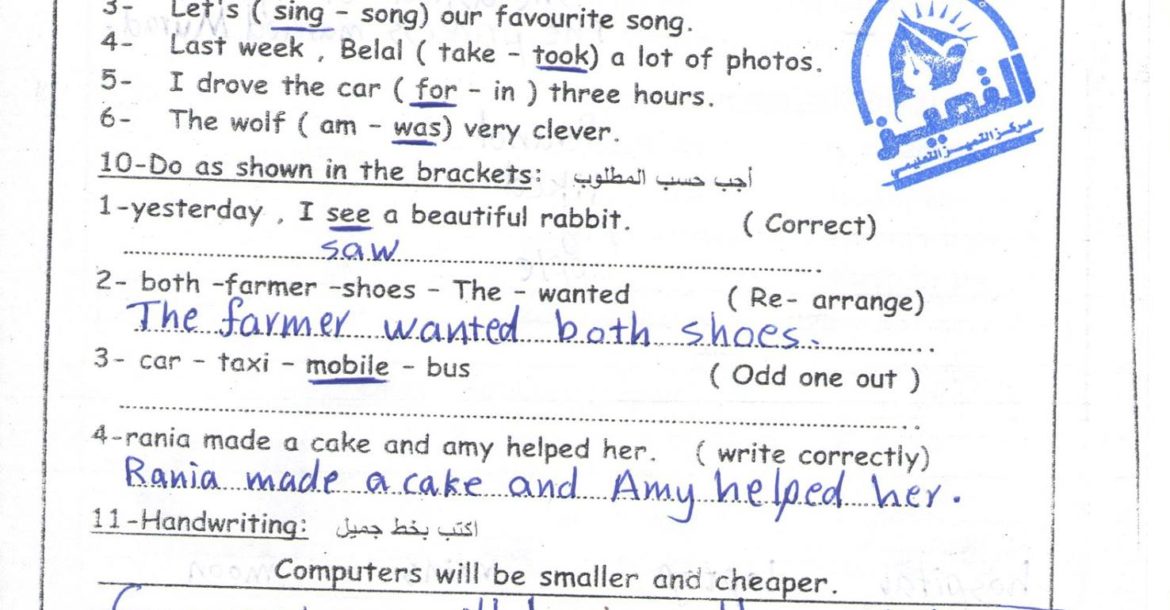 3- Let's ( sing - song) our favourite song.
4- Last week , Belal ( take - took) a lot of photos.
5- I drove the car ( for - in ) three hours.
6- The wolf ( am - was) very clever.
التميز
مركز التميز التعليمي
10-Do as shown in the brackets: أجب حسب المطلوب
1-yesterday , I see a beautiful rabbit. ( Correct)
saw
2- both -farmer -shoes - The - wanted ( Re- arrange)
The farmer wanted both shoes.
3- car - taxi - mobile - bus ( Odd one out )
4-rania made a cake and amy helped her. ( write correctly)
Rania made a cake and Amy helped her.
11-Handwriting: اكتب بخط جميل
Computers will be smaller and cheaper.